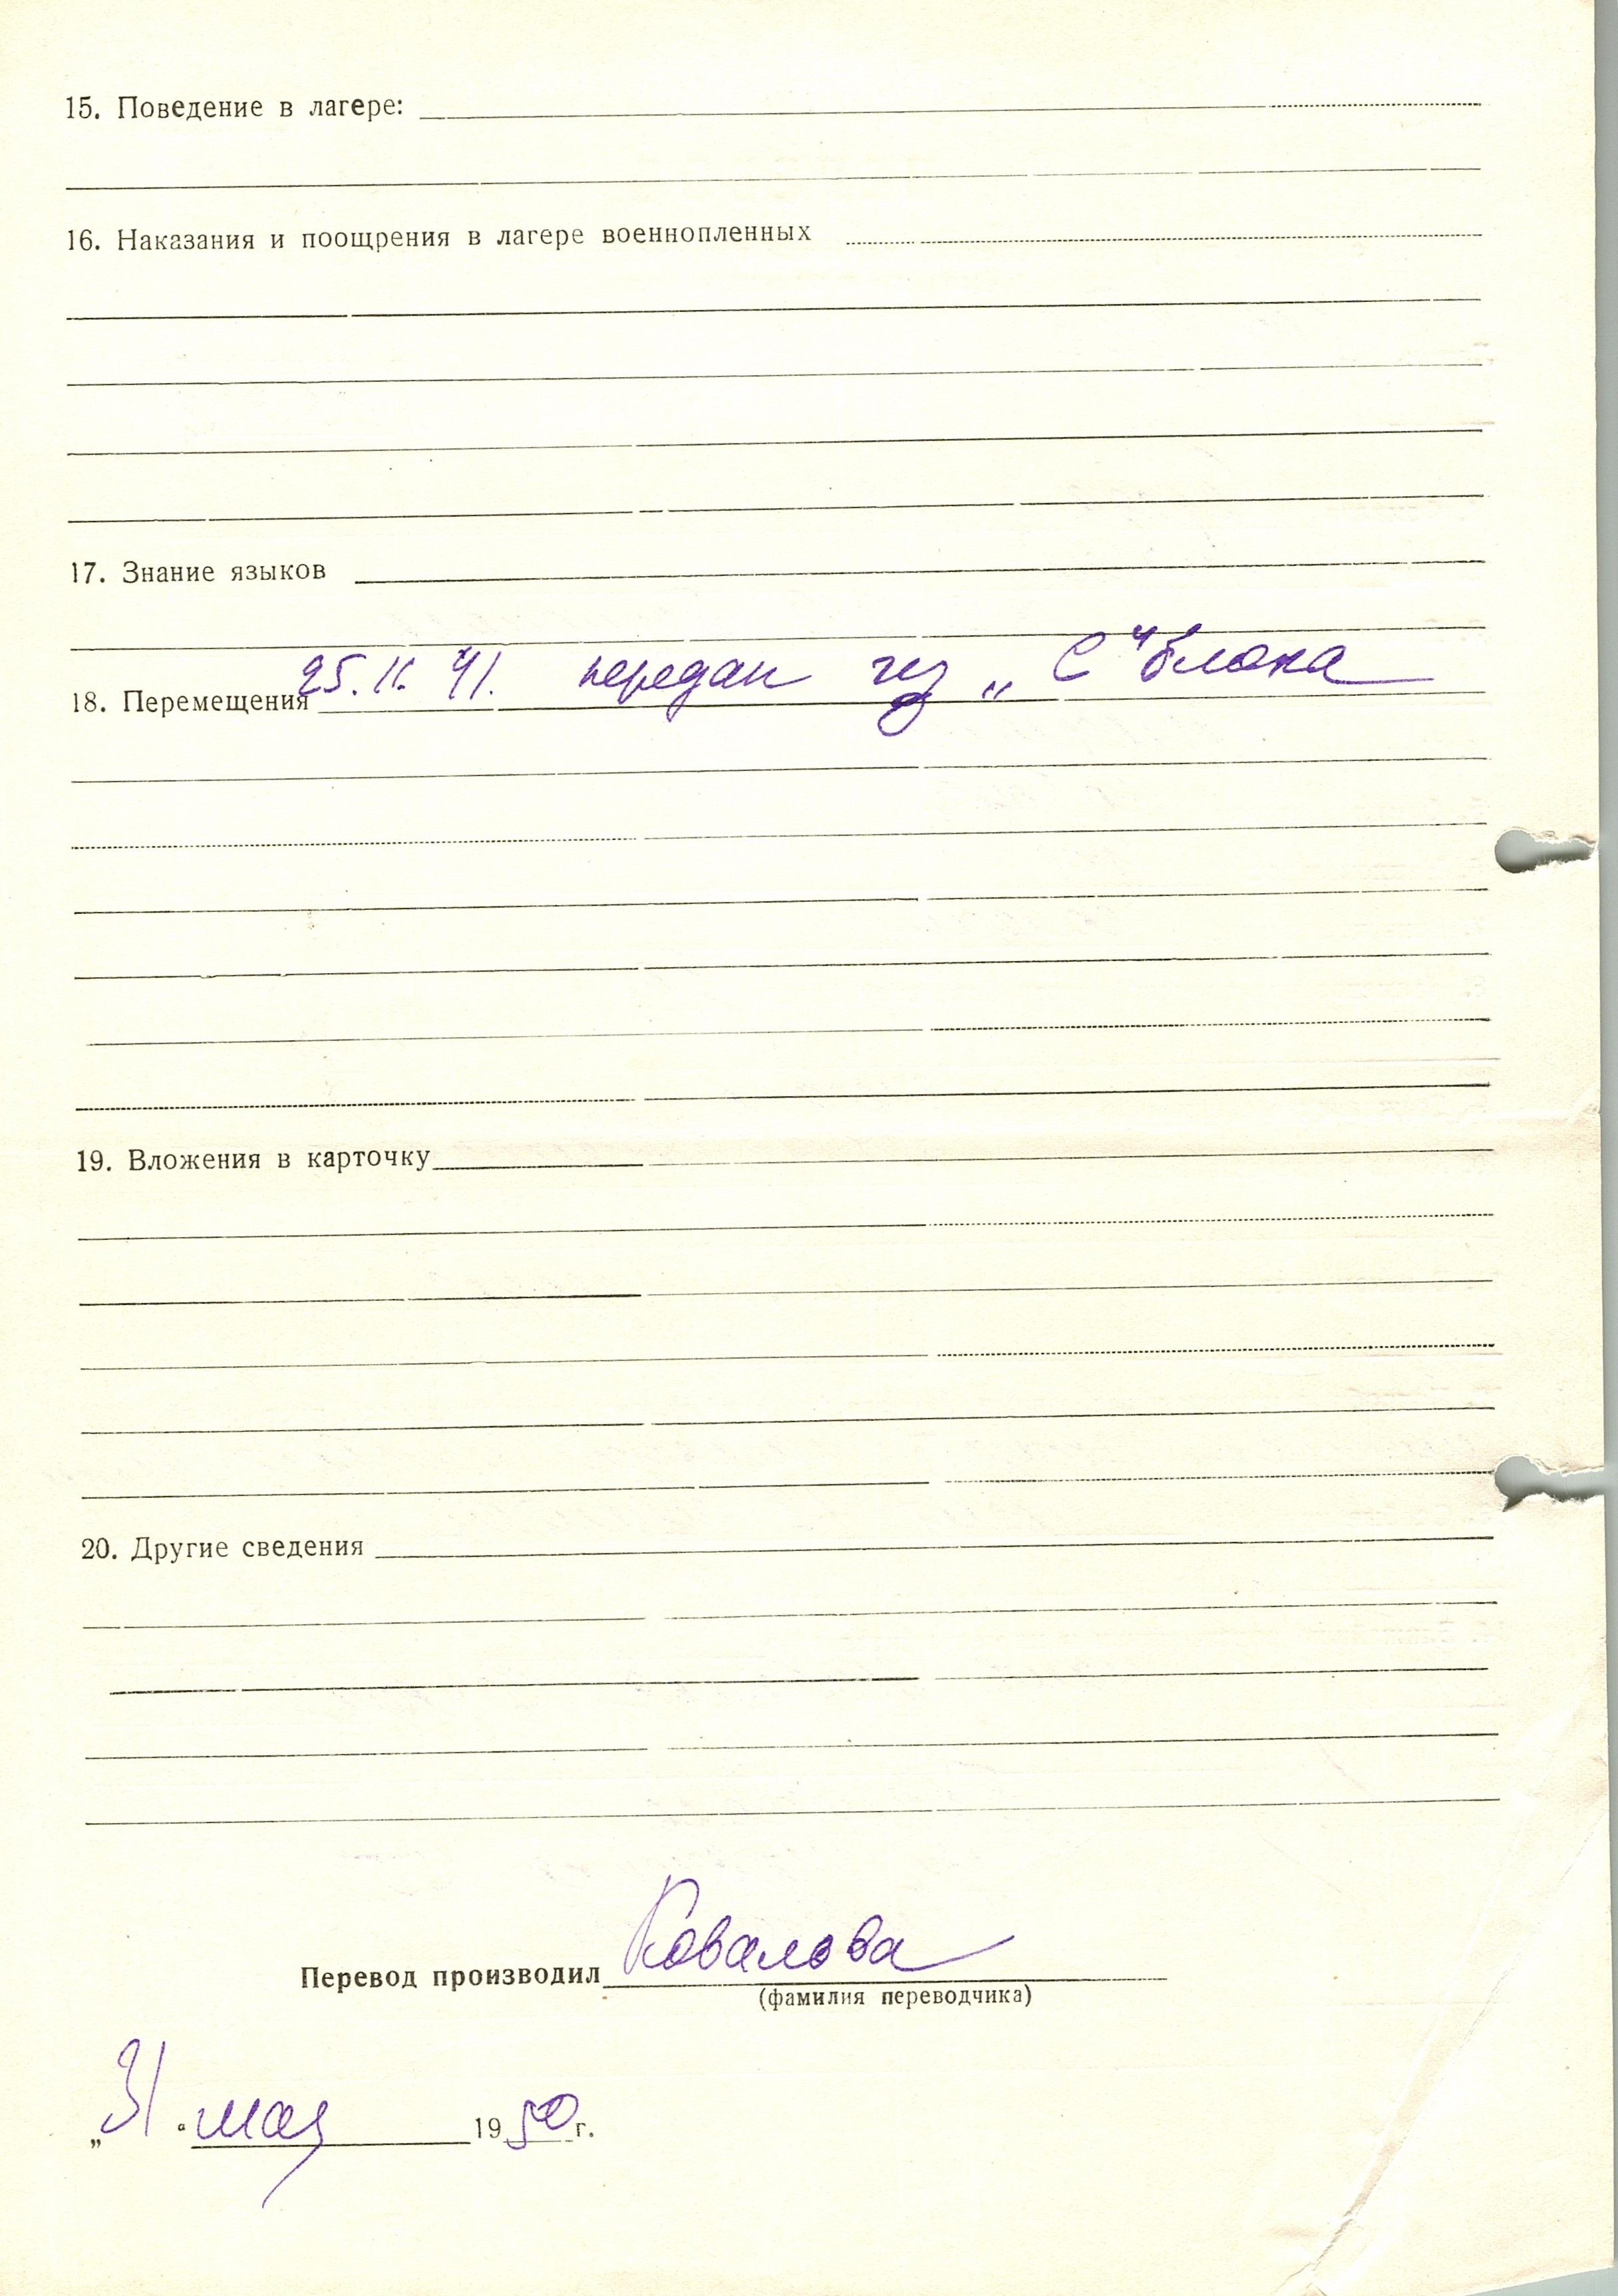 15. Поведение в лагере:
16. Наказания и поощрения в лагере военнопленных
17. Знание языков
18. Перемещения 25. 11. 41. передан из „С" блока
19. Вложения в карточку
20. Другие сведения
Перевод производил Ковалова
(фамилия переводчика)
„31" мая 1950 г.